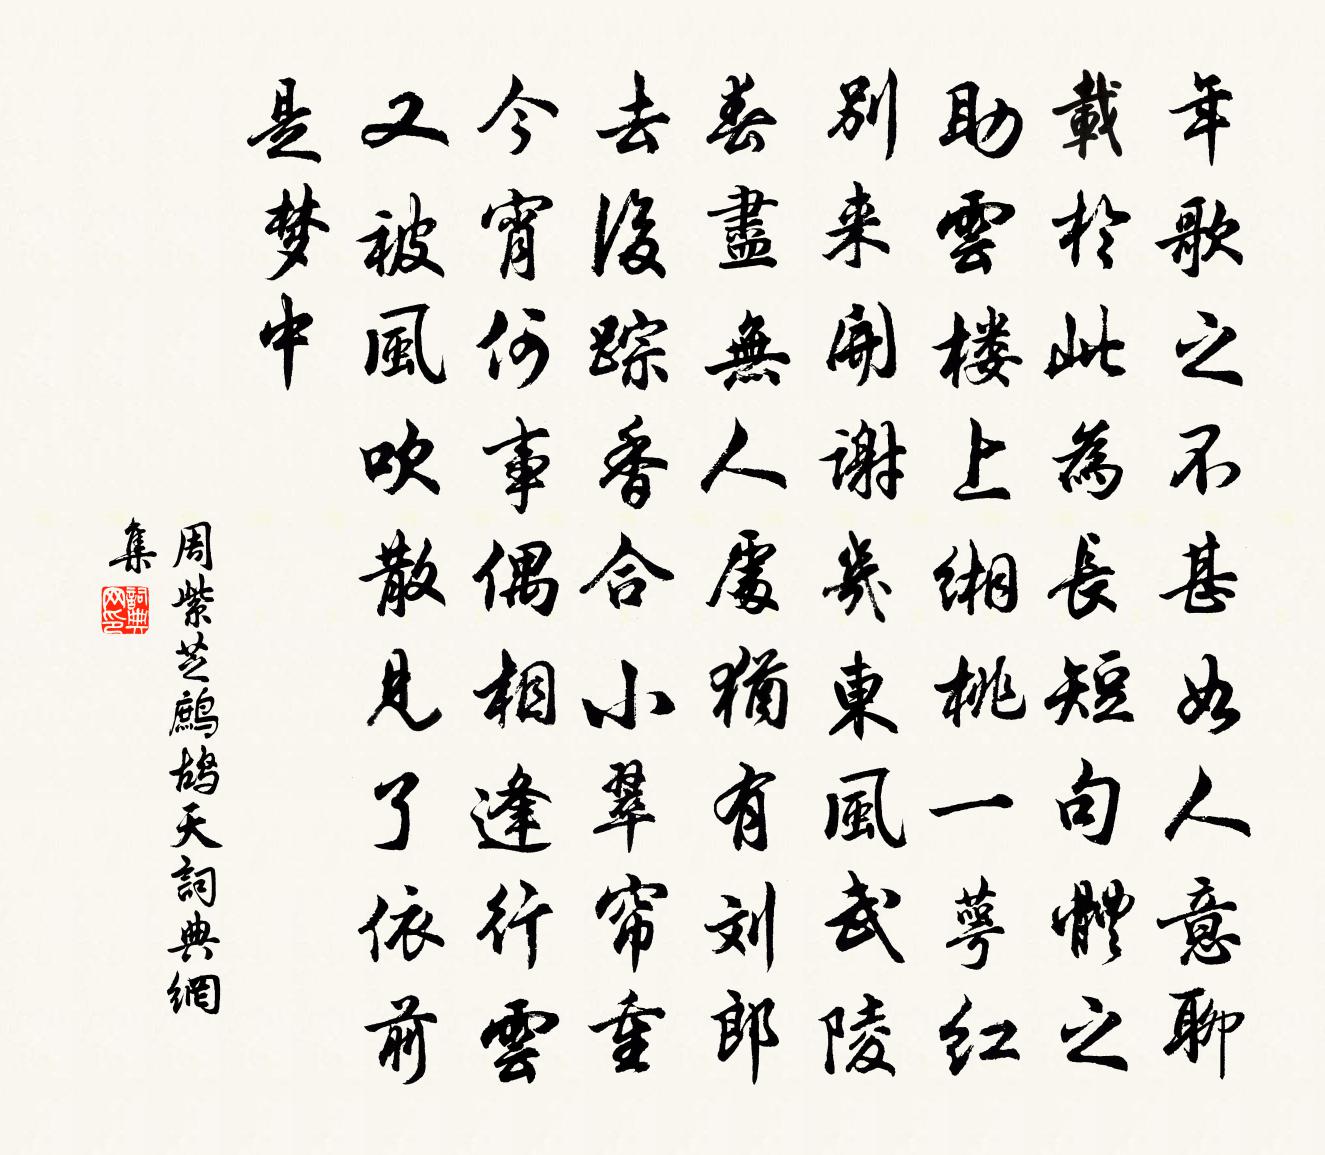 年歌之不甚如人意聊
載於此為長短句體之
助雲楼上緗桃一萼红
別来開謝幾東風武陵
春盡無人處猶有刘郎
去後踪香合小翠帘重
今宵何事偶相逢行雲
又被風吹散見了依前
是梦中
周紫芝鷓鴣天詞典網
集
詞典网印